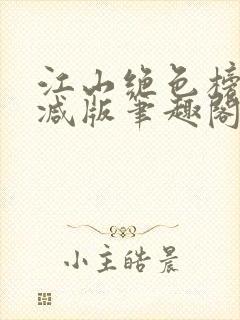 江山绝色榜
减版笔趣阁
小主皓晨